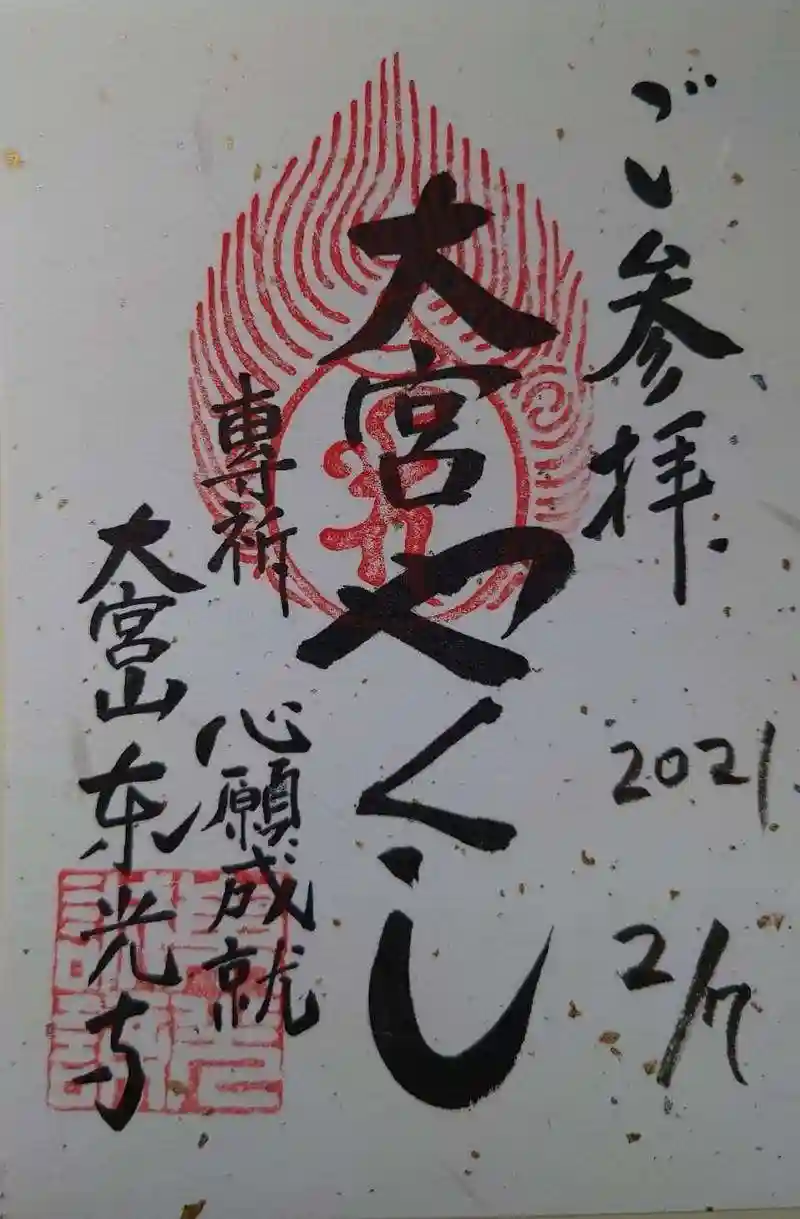 ご参拝
2021
2/7
大宮やくし
専祈
心願成就
大宮山
東光寺